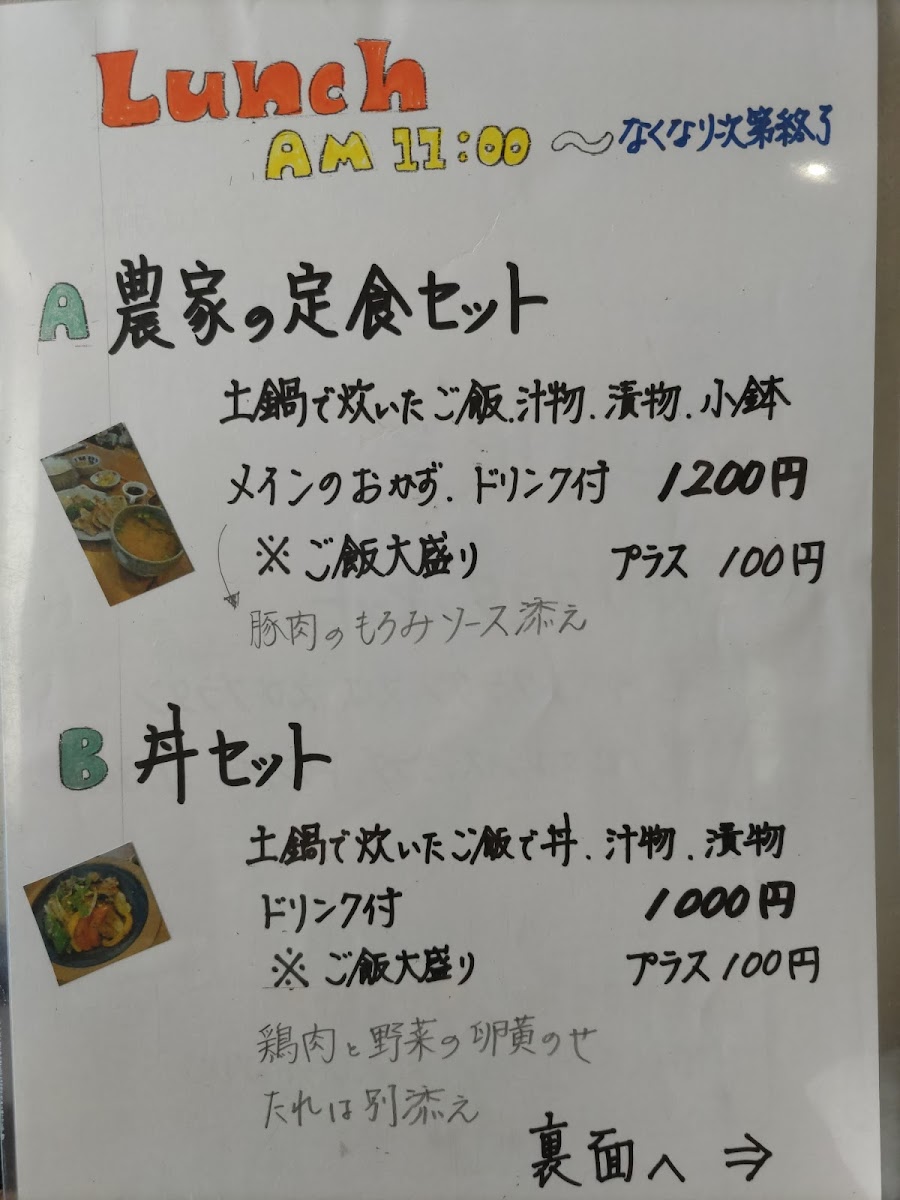 Lunch
AM 11:00 〜なくなり次第終了
A 農家の定食セット
土鍋で炊いたご飯、汁物、漬物、小鉢
メインのおかず、ドリンク付 1200円
※ご飯大盛り プラス 100円
豚肉のもろみソース添え
B 丼セット
土鍋で炊いたご飯で丼、汁物、漬物
ドリンク付 1000円
※ご飯大盛り プラス100円
鶏肉と野菜の卵黄のせ
たれは別添え
裏面へ ⇒